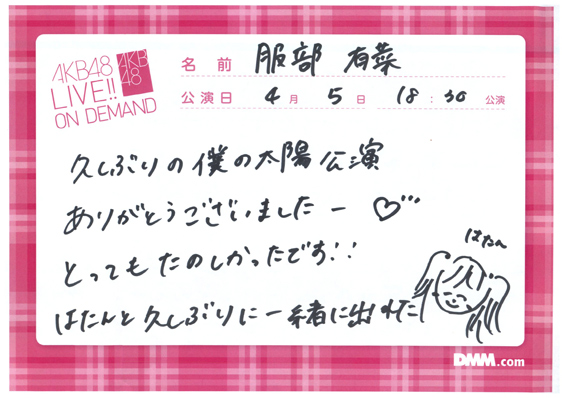 AKB48
LIVE!!
ON DEMAND
AKB
48
名前 服部 有菜
公演日 4月 5日 18:30 公演
久しぶりの僕の太陽公演
ありがとうございましたー♡・・・
とってもたのしかったです!!
はたんと久しぶりに一緒に出れた
はたん
DMM.com